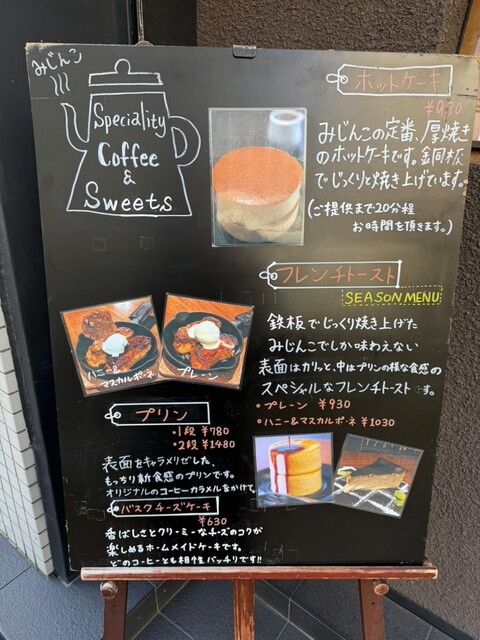 みじんこ
Speciality
Coffee
&
Sweets
ホットケーキ
¥930
みじんこの定番、厚焼き
のホットケーキです。銅板
でじっくりと焼き上げています。
(ご提供まで20分程
お時間を頂きます。)
フレンチトースト
SEASON MENU
鉄板でじっくり焼き上げた
みじんこでしか味わえない
表面はカリッと、中はプリンの様な食感の
スペシャルなフレンチトーストです。
・プレーン ¥930
・ハニー&マスカルポーネ ¥1030
ハニー&
マスカルポーネ
プレーン
プリン
・1段 ¥780
・2段 ¥1480
表面をキャラメリゼした、
もっちり新食感のプリンです。
オリジナルのコーヒーカラメルをかけて。
バスクチーズケーキ
¥630
香ばしさとクリーミーなチーズのコクが
楽しめるホームメイドケーキです。
どのコーヒーとも相性バッチリです!!